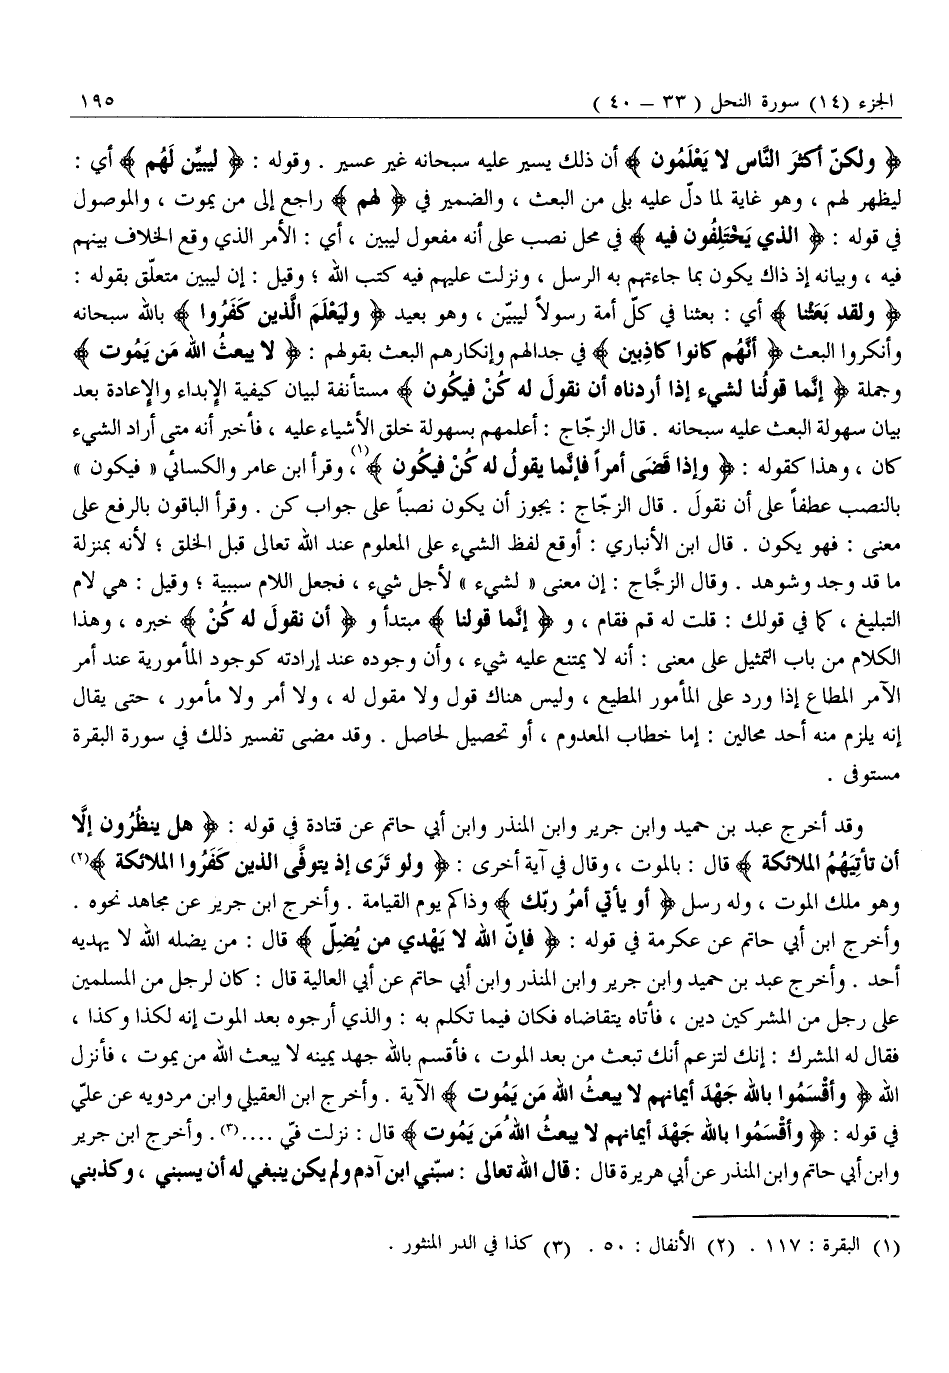 الجزء (١٤) سورة النحل ( ٣٣ – ٤٠ ) ١٩٥
﴿ ولكنّ أكثرَ النَّاس لا يَعْلَمُون ﴾ أن ذلك يسير عليه سبحانه غير عسير . وقوله : ﴿ ليبيِّن لَهُم ﴾ أي :
ليظهر لهم ، وهو غاية لما دلّ عليه بلى من البعث ، والضمير في ﴿ لهم ﴾ راجع إلى من يموت ، والموصول
في قوله : ﴿ الذي يَخْتَلِفُون فيه ﴾ في محل نصب على أنه مفعول ليبين ، أي : الأمر الذي وقع الخلاف بينهم
فيه ، وبيانه إذ ذاك يكون بما جاءتهم به الرسل ، ونزلت عليهم فيه كتب الله ؛ وقيل : إن ليبين متعلّق بقوله :
﴿ ولقد بَعَثْنا ﴾ أي : بعثنا في كلّ أمة رسولاً ليبيّن ، وهو بعيد ﴿ وليَعْلَمَ الَّذين كَفَرُوا ﴾ بالله سبحانه
وأنكروا البعث ﴿ أنَّهُم كانوا كاذِبين ﴾ في جدالهم وإنكارهم البعث بقولهم : ﴿ لا يبعثُ الله مَن يَمُوت ﴾
وجملة ﴿ إنَّما قولُنا لشيء إذا أردناه أن نقولَ له كُنْ فيكُون ﴾ مستأنفة لبيان كيفية الإبداء والإعادة بعد
بيان سهولة البعث عليه سبحانه . قال الزجّاج : أعلمهم بسهولة خلق الأشياء عليه ، فأخبر أنه متى أراد الشيء
كان ، وهذا كقوله : ﴿ وإذا قَضَى أمراً فإنَّما يقولُ له كُنْ فيكُون ﴾(١)، وقرأ ابن عامر والكسائي « فيكون »
بالنصب عطفاً على أن نقولَ . قال الزجّاج : يجوز أن يكون نصباً على جواب كن . وقرأ الباقون بالرفع على
معنى : فهو يكون . قال ابن الأنباري : أوقع لفظ الشيء على المعلوم عند الله تعالى قبل الخلق ؛ لأنه بمنزلة
ما قد وجد وشوهد . وقال الزجَّاج : إن معنى « لشيء » لأجل شيء ، فجعل اللام سببية ؛ وقيل : هي لام
التبليغ ، كما في قولك : قلت له قم فقام ، و ﴿ إنَّما قولنا ﴾ مبتدأ و ﴿ أن نقول له كُنْ ﴾ خبره ، وهذا
الكلام من باب التمثيل على معنى : أنه لا يمتنع عليه شيء ، وأن وجوده عند إرادته كوجود المأمورية عند أمر
الآمر المطاع إذا ورد على المأمور المطيع ، وليس هناك قول ولا مقول له ، ولا أمر ولا مأمور ، حتى يقال
إنه يلزم منه أحد محالين : إما خطاب المعدوم ، أو تحصيل لحاصل . وقد مضى تفسير ذلك في سورة البقرة
مستوفى .
وقد أخرج عبد بن حميد وابن جرير وابن المنذر وابن أبي حاتم عن قتادة في قوله : ﴿ هل ينظُرُون إلَّا
أن تأتيَهُمُ الملائكة ﴾ قال : بالموت ، وقال في آية أخرى : ﴿ ولو تَرَى إذ يتوفَّى الذين كَفَرُوا الملائكة ﴾(٢)
وهو ملك الموت ، وله رسل ﴿ أو يأتي أمرُ ربّك ﴾ وذاكم يوم القيامة . وأخرج ابن جرير عن مجاهد نحوه .
وأخرج ابن أبي حاتم عن عكرمة في قوله : ﴿ فإنّ الله لا يَهْدي من يُضِلّ ﴾ قال : من يضله الله لا يهديه
أحد . وأخرج عبد بن حميد وابن جرير وابن المنذر وابن أبي حاتم عن أبي العالية قال : كان لرجل من المسلمين
على رجل من المشركين دين ، فأتاه يتقاضاه فكان فيما تكلم به : والذي أرجوه بعد الموت إنه لكذا وكذا ،
فقال له المشرك : إنك لتزعم أنك تبعث من بعد الموت ، فأقسم بالله جهد يمينه لا يبعث الله من يموت ، فأنزل
الله ﴿ وأقْسَمُوا بالله جَهْدَ أيمانهم لا يبعثُ الله مَن يَمُوت ﴾ الآية . وأخرج ابن العقيلي وابن مردويه عن عليّ
في قوله : ﴿ وأقْسَمُوا بالله جَهْدَ أيمانهم لا يبعثُ اللهُ مَن يَمُوت ﴾ قال : نزلت فيّ ....(٣). وأخرج ابن جرير
وابن أبي حاتم وابن المنذر عن أبي هريرة قال : قال الله تعالى : سبّني ابن آدم ولم يكن ينبغي له أن يسبني ، وكذبني
(١) البقرة : ١١٧ . (٢) الأنفال : ٥٠ . (٣) كذا في الدر المنثور .